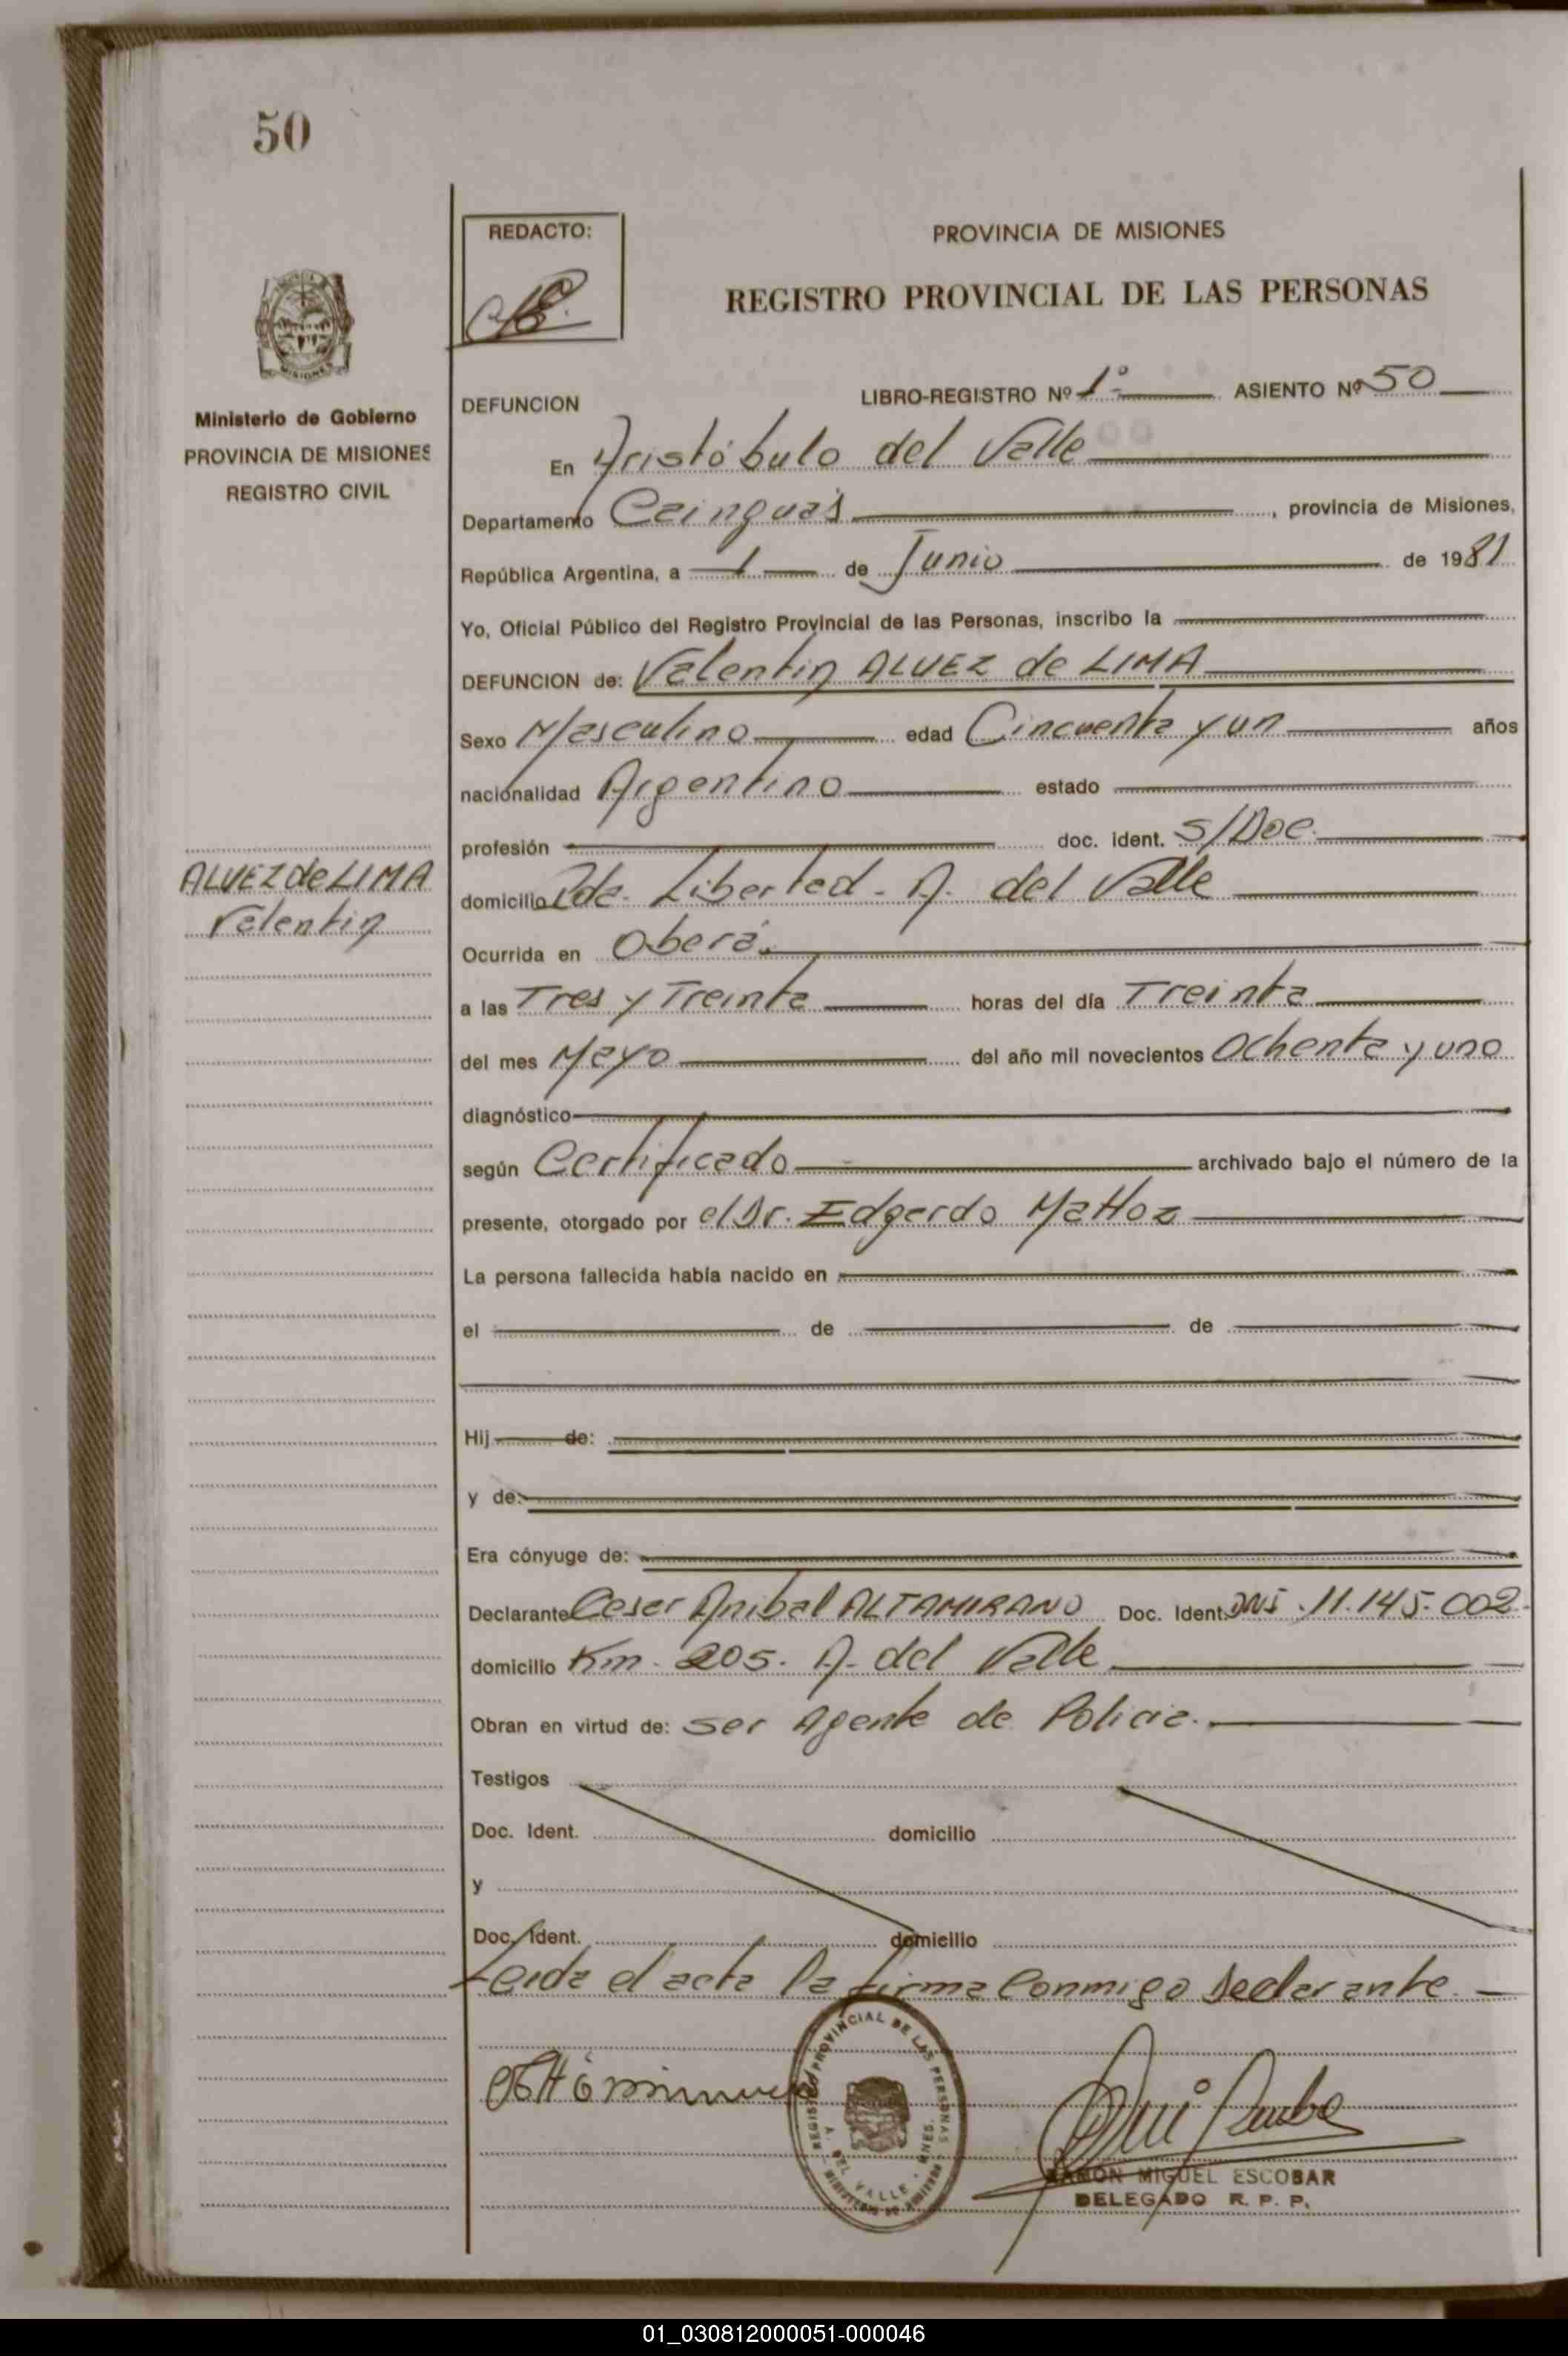 50
REDACTO:
PROVINCIA DE MISIONES
REGISTRO PROVINCIAL DE LAS PERSONAS
MISIONES
Ministerio de Gobierno
PROVINCIA DE MISIONES
REGISTRO CIVIL
DEFUNCION
LIBRO-REGISTRO Nº 1º ASIENTO Nº 50
En Aristóbulo del Valle
Departamento Cainguás, provincia de Misiones,
República Argentina, a 1 de Junio de 1981
Yo, Oficial Público del Registro Provincial de las Personas, inscribo la
DEFUNCION de: Valentin ALVEZ de LIMA
Sexo Masculino edad Cincuenta y un años
nacionalidad Argentino estado
profesión doc. ident. S/Doc.
ALVEZ de LIMA
Valentin
domicilio Libertad - A. del Valle
Ocurrida en Oberá.
a las Tres y Treinta horas del día Treinta
del mes Mayo del año mil novecientos Ochenta y uno
diagnóstico
según Certificado archivado bajo el número de la
presente, otorgado por el Dr. Edgardo Mattos
La persona fallecida había nacido en
el de de
Hij de:
y de:
Era cónyuge de:
Declarante Cesar Anibal ALTAMIRANO Doc. Ident. DNI. 11.145.002
domicilio Km. 205. A. del Valle
Obran en virtud de: ser Agente de Policia.
Testigos
Doc. Ident. domicilio
y
Doc. Ident. domicilio
Leida el acta la firma Conmigo Declarante.
REGISTRO PROVINCIAL DE LAS PERSONAS
A. DEL VALLE - MNES.
RAMON MIGUEL ESCOBAR
DELEGADO R. P. P.
01_030812000051-000046